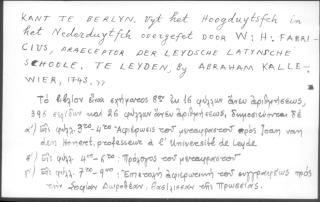 KANT TE BERLYN. Uyt het Hoogduytsch in
het Nederduytsch overgeset DOOR W: H: FABRI-
CIUS, PRAECEPTOR DER LEYDSCHE LATYNSCHE
SCHOOLE. TE LEYDEN, By ABRAHAM KALLE-
WIER, 1743.,,
Τὸ βιβλίον εἶναι σχήματος 8ου ἐκ 16 φύλλων ἄνευ ἀριθμήσεως,
395 σελίδων καὶ 26 φύλλων ἄνευ ἀριθμήσεως, δημοσιεύονται δὲ
α') Εἰς φύλλ. 3ον-4ον Ἀφιέρωσις τοῦ μεταφραστοῦ πρὸς Joan van
den Honert, professeur à l' Université de Leyde
β') Εἰς φύλλ. 4ον-6ον: Πρόλογος τοῦ μεταφραστοῦ
γ') Εἰς φύλλ. 7ον-9ον: Ἐπιστολὴ ἀφιερωτικὴ τοῦ συγγραφέως πρὸς
τὴν Σοφίαν Δωροθέαν, βασίλισσαν τῆς Πρωσσίας.